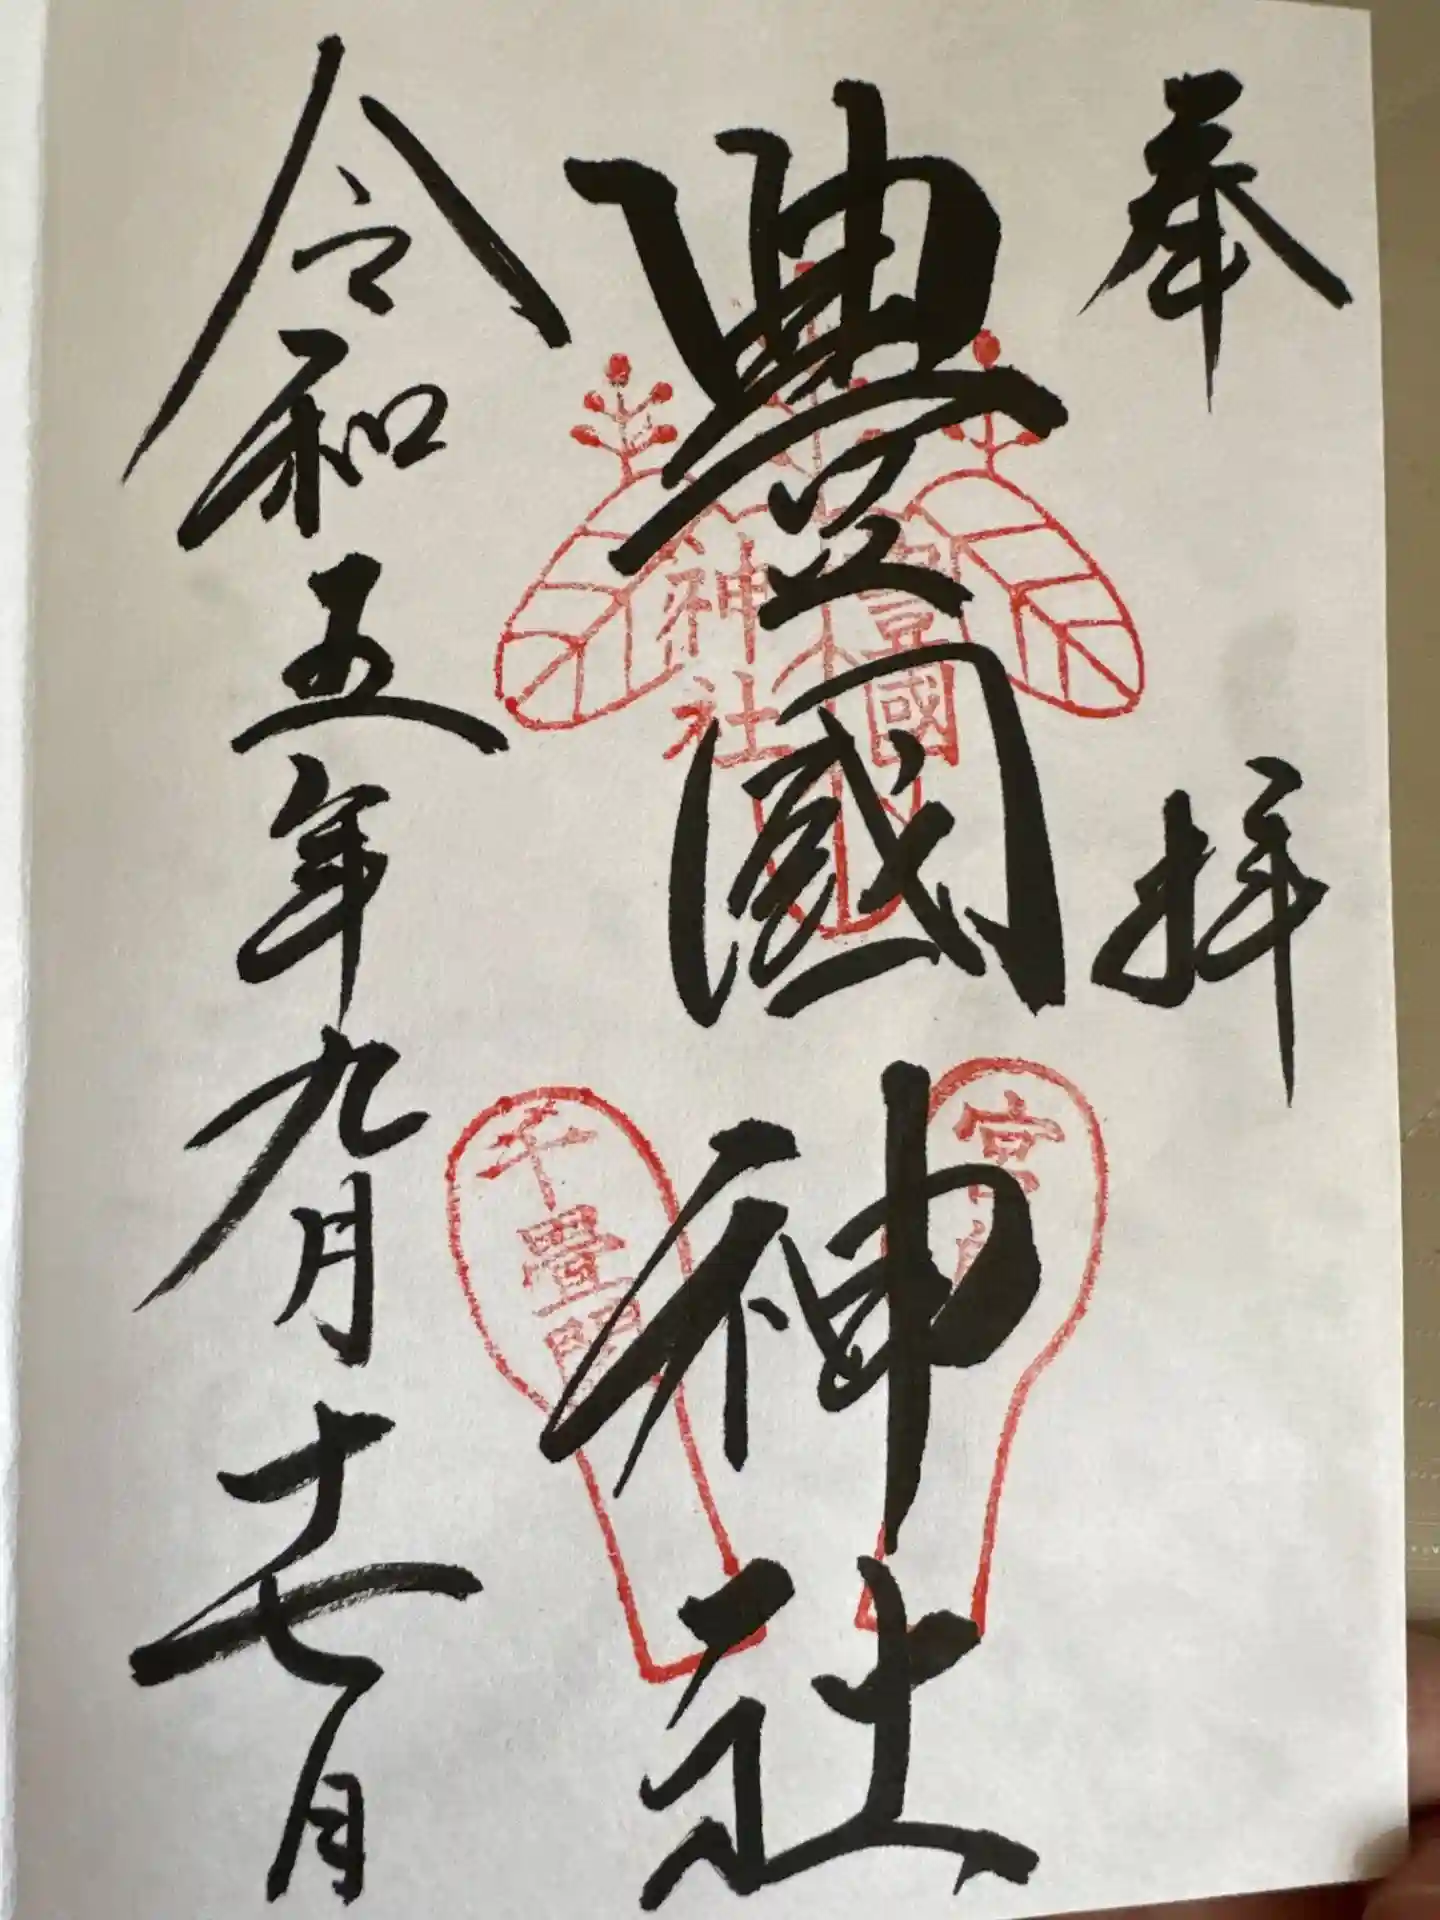 奉拝
豊國神社
令和五年九月十七日
豊國
神社
宮島
千畳閣